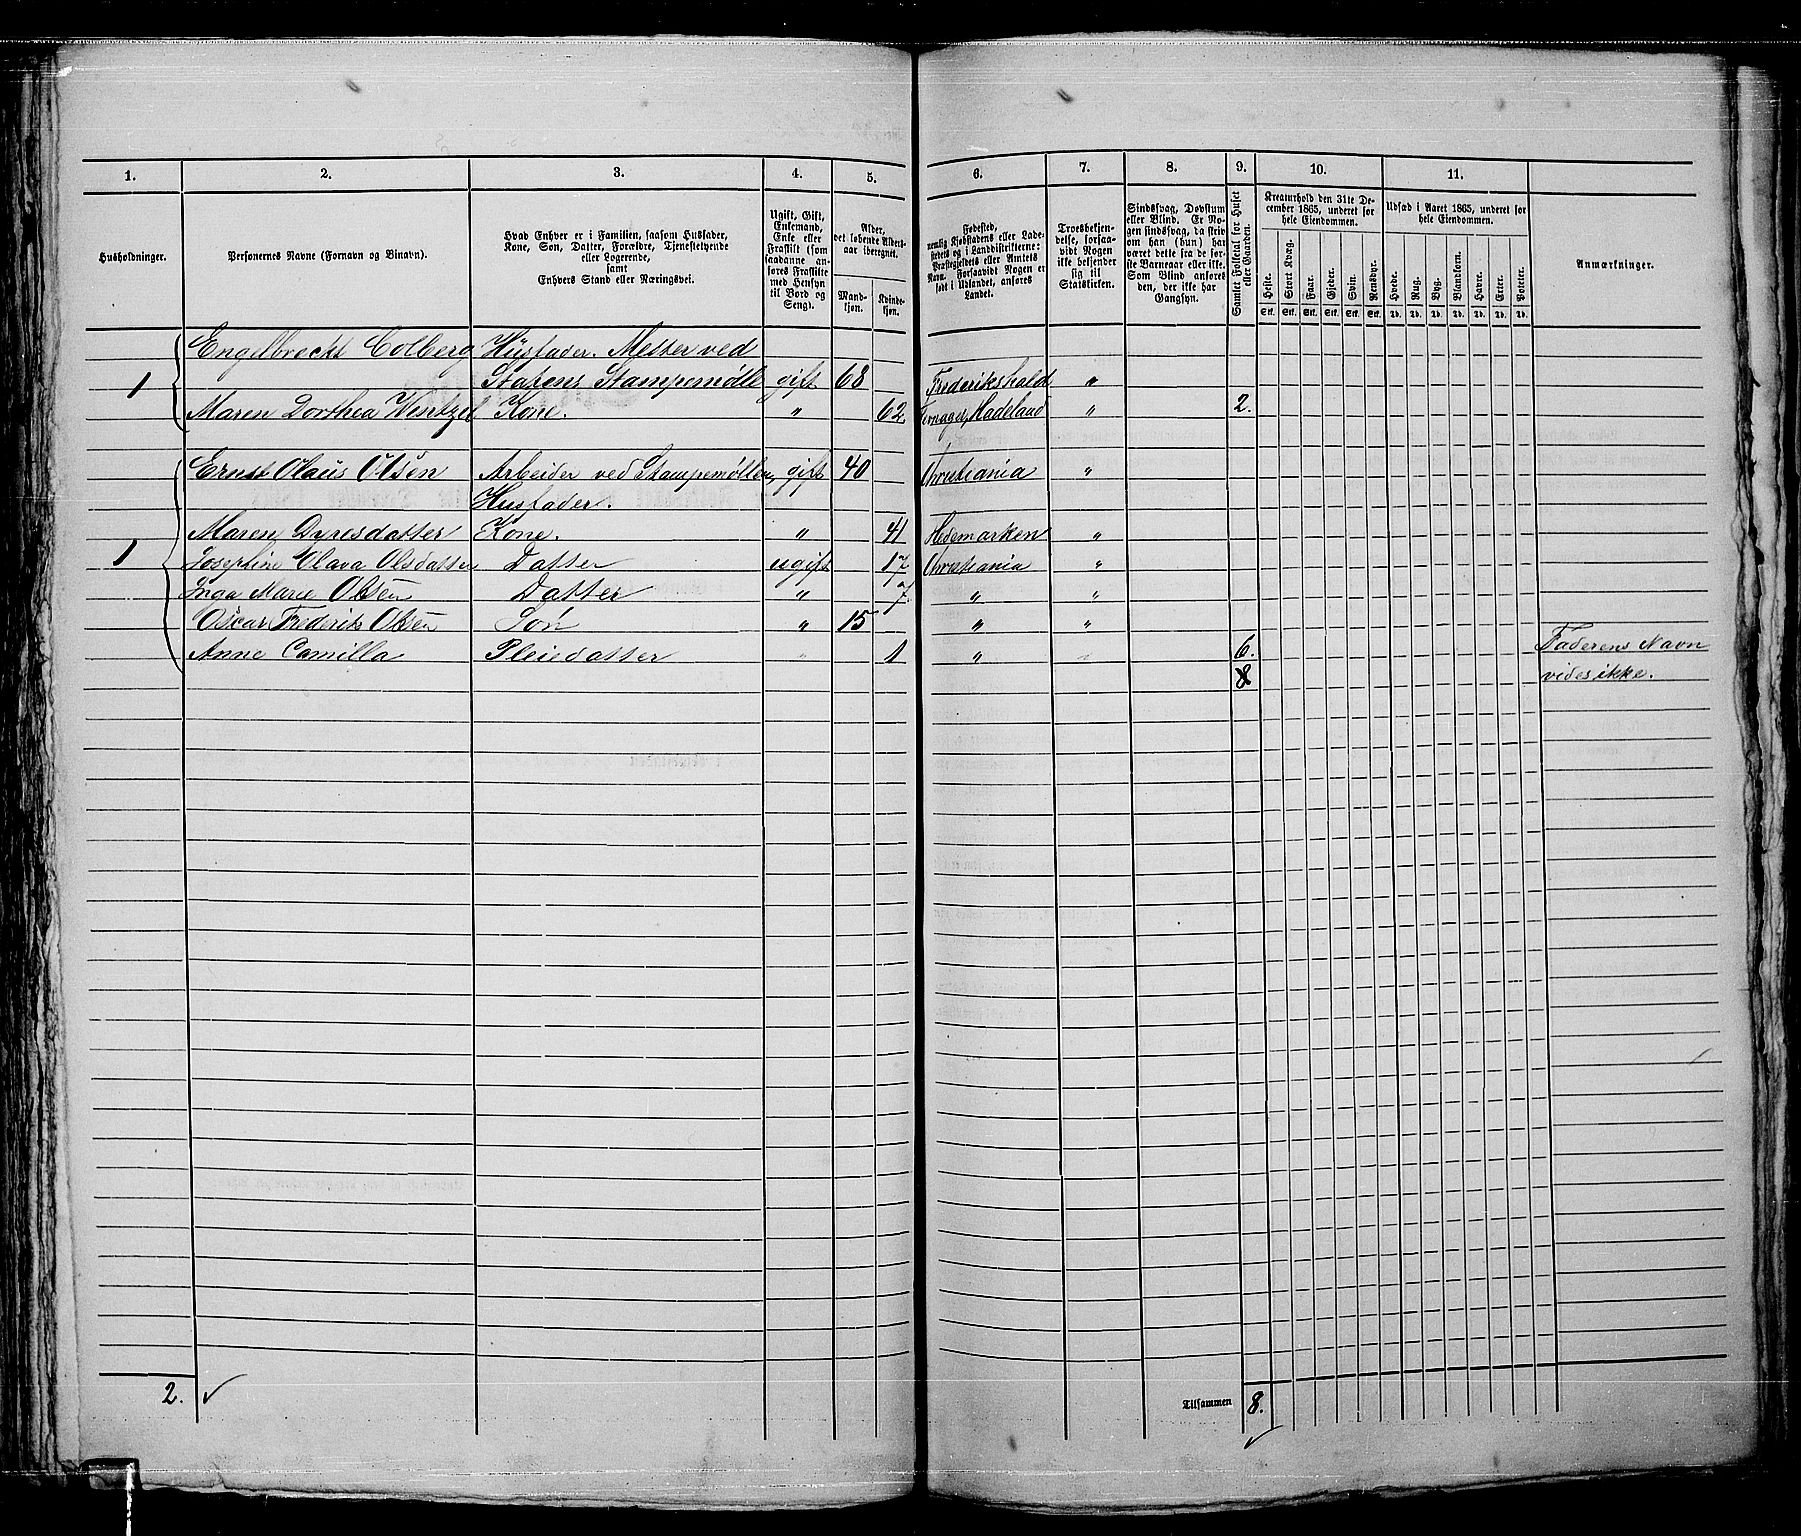 1.	2.	3.	4.	5.	6.	7.	8.	9.	10.	11.
Husholdninger.
Personernes Navne (Fornavn og Binavn).
Hvad Enhver er i Familien, saasom Husfader,
Kone, Søn, Datter, Forældre, Tjenestetyende
eller Logerende,
samt
Enhvers Stand eller Næringsvei.
Ugift, Gift,
Enkemand,
Enke eller
Fraskilt (som
saadanne an-
føres Fraskilte
med Hensyn
til Bord og
Seng).
Alder,
det løbende Alders-
aar iberegnet.
Mand-
kjøn.
Kvinde-
kjøn.
Fødested,
nemlig Kjøbstadens eller Lade-
stedets og i Landdistrikterne:
Præstegjeldets eller Amtets
Navn. Forsaavidt Nogen er
født i Udlandet, anføres
Landet.
Troesbekjen-
delse, forsaa-
vidt Nogen
ikke bekjender
sig til
Statskirken.
Sindssvag, Døvstum
eller Blind. Er No-
gen sindssvag, da skriv
om han (hun) har
været dette fra de før-
ste Barneaar eller ikke.
Som Blind anføres
den, der ikke har
Gangsyn.
Samlet Folketal for Huset
eller Gaarden.
Kreaturhold den 31te De-
cember 1865, underet for
hele Eiendommen.
Heste.	Stort Kvæg.	Faar.	Gjeder.	Svin.	Rensdyr.
Stk.	Stk.	Stk.	Stk.	Stk.	Stk.
Udsæd i Aaret 1865, underet for
hele Eiendommen.
Hvede.	Rug.	Byg.	Blandkorn.	Havre.	Erter.	Poteter.
Td.	Td.	Td.	Td.	Td.	Td.	Td.
Anmærkninger.
Engelbrecht Colberg	Husfader. Mester ved
1	Statens Stampemølle	gift	68	Frederikshald	"
Maren Dorthea Wentzel	Kone.	"	62	Hadeland	"	2.
Ernst Olaus Olsen	Arbeider ved Stampemøllen,	gift	40	Christiania	"
Husfader.
Maren Dyresdatter	Kone.	"	41	Hedemarken	"
1	Josephine Olava Olsdatter	Datter	ugift	17	Christiania	"
Inga Marie Olsen	Datter	"	7.	"	"
Oscar Frederik Olsen	Søn	"	15	"	"
Anne Camilla	Pleiedatter	"	1	"	"	6.	Faderens Navn
8	vides ikke.
2.
Tilsammen	8.